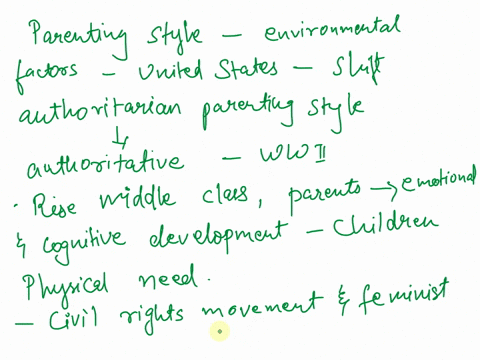 Parenting style - environmental
factors - United States - Shift
authoritarian parenting style
↓
authoritative - WWII
· Rise middle class, parents → emotional
& cognitive development - Children
Physical need.
- Civil rights movement & feminist